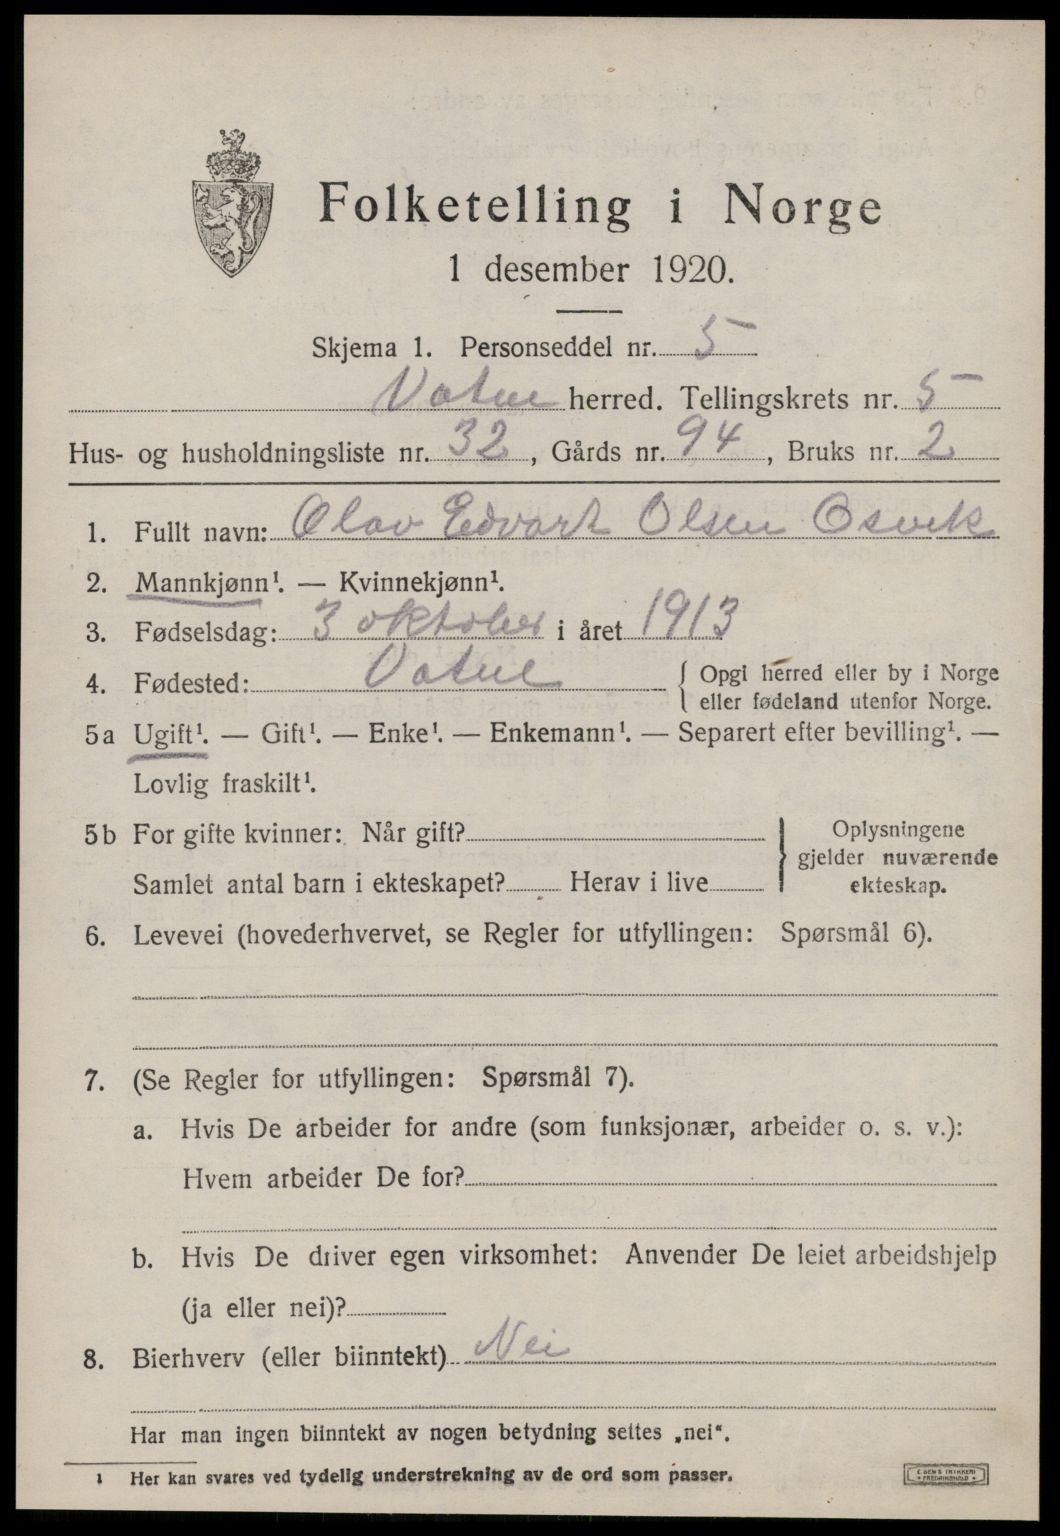 Folketelling i Norge
1 desember 1920.
Skjema 1. Personseddel nr. 5
Vatne herred. Tellingskrets nr. 5
Hus- og husholdningsliste nr. 32, Gårds nr. 94, Bruks nr. 2
1. Fullt navn: Olav Edvart Olsen Osvik
2. Mannkjønn¹. — Kvinnekjønn¹.
3. Fødselsdag: 3 oktober i året 1913
4. Fødested: Vatne { Opgi herred eller by i Norge
eller fødeland utenfor Norge.
5a Ugift¹. — Gift¹. — Enke¹. — Enkemann¹. — Separert efter bevilling¹. —
Lovlig fraskilt¹.
5b For gifte kvinner: Når gift? } Oplysningene
gjelder nuværende
Samlet antal barn i ekteskapet? Herav i live
ekteskap.
6. Levevei (hovederhvervet, se Regler for utfyllingen: Spørsmål 6).
7. (Se Regler for utfyllingen: Spørsmål 7).
a. Hvis De arbeider for andre (som funksjonær, arbeider o. s. v.):
Hvem arbeider De for?
b. Hvis De driver egen virksomhet: Anvender De leiet arbeidshjelp
(ja eller nei)?
8. Bierhverv (eller biinntekt) Nei
Har man ingen biinntekt av nogen betydning settes „nei“.
¹ Her kan svares ved tydelig understrekning av de ord som passer.